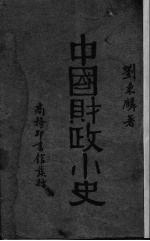 劉秉麟著
中國財政小史
商務印書館發行